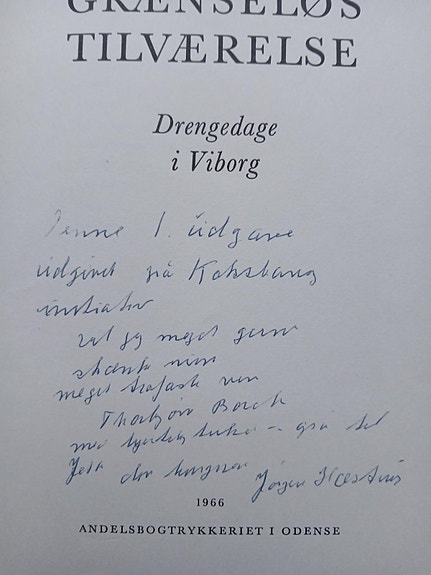 GRÆNSELØS
TILVÆRELSE
Drengedage
i Viborg
Denne 1. udgave
udgivet på Koksbang
initiativ
vil jeg meget gerne
skænke min
meget trofaste ven
Thorbjørn Borch
med hjertelig tak
Jørgen
1966
ANDELSBOGTRYKKERIET I ODENSE